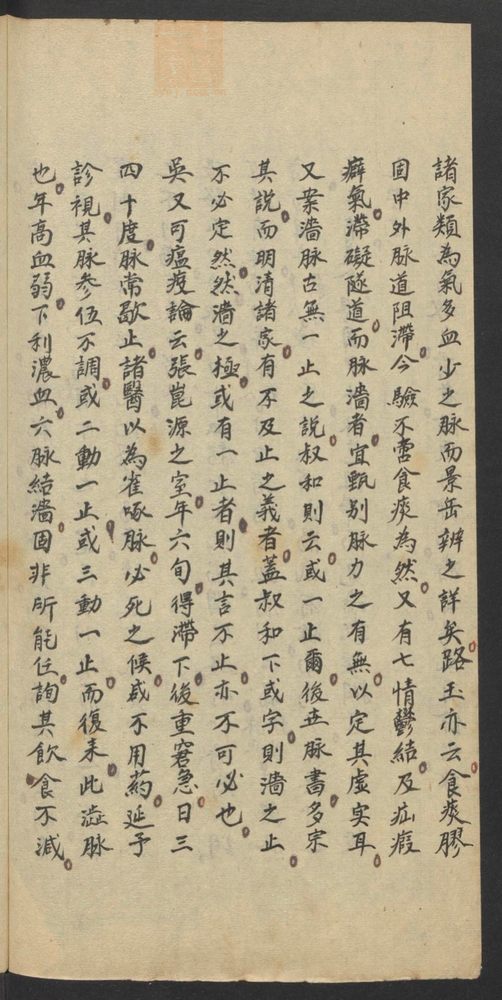 諸家類為氣多血少之脉而景岳辨之詳矣路玉亦云食痰膠
固中外脉道阻滯今驗不啻食痰為然又有七情鬱結及疝瘕
癖氣滯礙隧道而脉濇者宜甄別脉力之有無以定其虛实耳
又案濇脉古無一止之說叔和則云或一止爾後世脉書多宗
其說而明清諸家有不及止之義者蓋叔和下或字則濇之止
不必定然然濇之極或有一止者則其言不止亦不可必也
吳又可瘟疫論云張崑源之室年六旬得滯下後重窘急日三
四十度脉常歇止諸醫以為雀啄脉必死之候咸不用葯延予
診視其脉参伍不調或二動一止或三動一止而復来此澁脉
也年高血弱下利濃血六脉結濇固非所能任詢其飲食不減